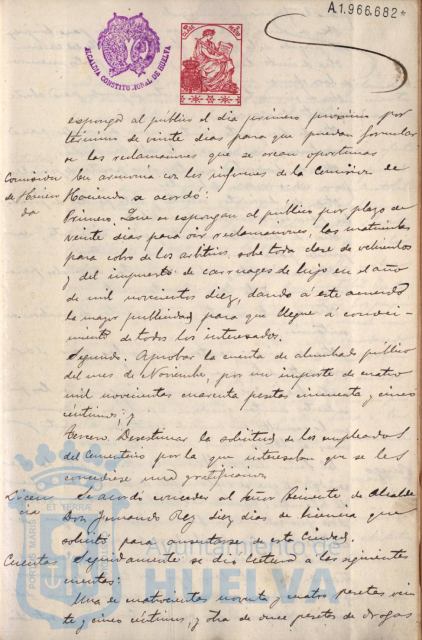 A.1.966.682*
ALCALDIA CONSTITUCIONAL DE HUELVA
esponga al público el dia primero próximo por
término de veinte dias para que puedan formular
se las reclamaciones que se crean oportunas
Comisión de Hacienda
En armonia con los informes de la Comisión de
Hacienda se acordó:
Primero. Que se espongan al público por plazo de
veinte dias para oir reclamaciones, las matriculas
para cobro de los arbitrios sobre toda clase de vehiculos
y del impuesto de carruages de lujo en el año
de mil novecientos diez, dando á este acuerdo
la mayor publicidad para que llegue á conoci-
miento de todos los interesados.
Segundo. Aprobar la cuenta de alumbrado público
del mes de Noviembre, por un importe de cuatro
mil novecientas cuarenta pesetas cincuenta y cinco
céntimos; y
Tercero. Desestimar la solicitud de los empleados
del Cementerio por la que interesaban que se les
concediese una gratificacion
Licencia
Se acordó conceder al Señor Teniente de Alcalde
Don Fernando Rey diez dias de licencia que
solicitó para ausentarse de esta Ciudad.
Cuentas
Seguidamente se dió lectura á las siguientes
cuentas:
Una de cuatrocientas noventa y cuatro pesetas vein
te y cinco céntimos, y otra de once pesetas de drogas
PORTUS MARIS ET TERRAE
Ayuntamiento de
HUELVA